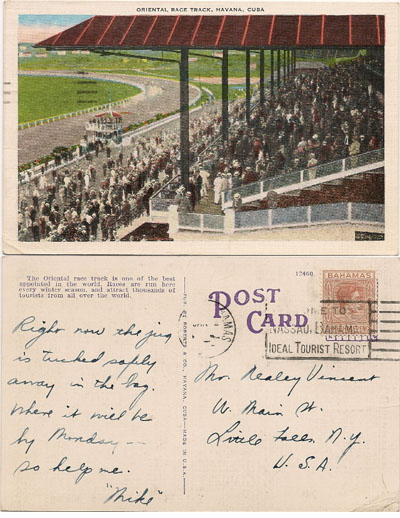 ORIENTAL RACE TRACK, HAVANA, CUBA
The Oriental race track is one of the best
appointed in the world. Races are run here
every winter season, and attract thousands of
tourists from all over the world.
Right now the jug
is tucked safely
away in the bag.
Where it will be
by Monday —
so help me.
"Mike"
17460
POST
CARD
BAHAMAS
NASSAU, BAHAMA
IDEAL TOURIST RESORT
Mr. Realey Vincent
W. Main St.
Little Falls. N.Y.
U. S. A.